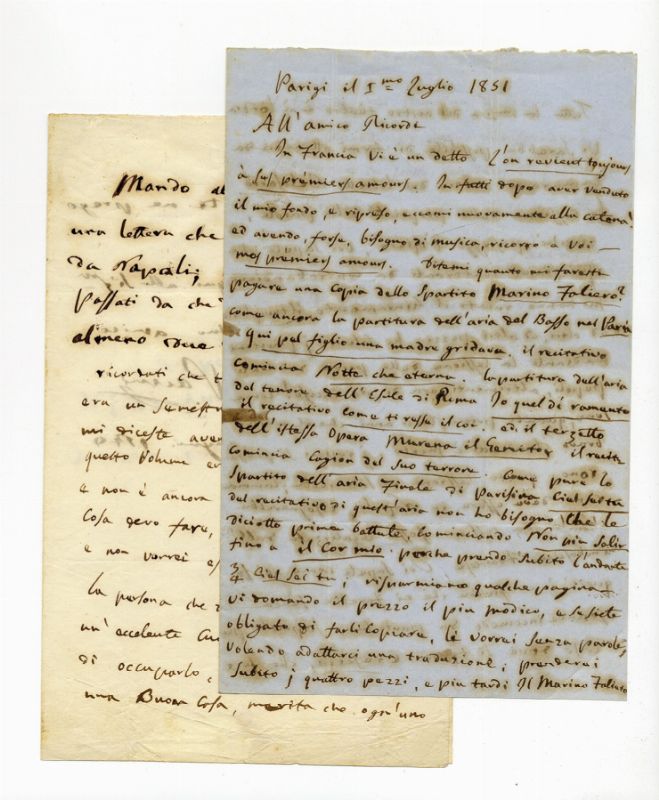 Parigi il Imo Luglio 1851
All'amico Ricordi
In Francia vi è un detto L'on revient toujours
à ses prémiers amours. In fatti dopo aver venduto
il mio fondo, e ripreso, eccomi nuovamente alla catena!
ed avendo, forse, bisogno di musica, ricorro a voi —
mes prémiers amours. Ditemi quanto mi fareste
pagare una copia dello Spartito Marino Faliero?
come ancora la partitura dell'aria del Basso nel Paria
Qui pel figlio una madre gridava. il recitativo
comincia Notte che eterna. la partitura dell'aria
del tenore dell'Esule di Roma Io quel dì ramento
il recitativo come ti resse il cor. ed il terzetto
dell'istessa Opera Murena il Genitor il recit:
comincia Cagion del suo terrore. Come pure lo
Spartito dell'aria finale di Parisina Ciel sei tu
del recitativo di quest'aria non ho bisogno che le
diciotto prime battute, cominciando Non più salir
fino a il Cor mio. perche prendo subito l'andante
3/4 Ciel sei tu, risparmiamo qualche pagina.
Vi domando il prezzo il più modico, e se siete
obligato di farli copiare, li vorrei senza parole,
volendo adattarci una traduzione; prenderei
subito i quattro pezzi, e più tardi Il Marino Faliero
Mando al
una lettera che
da Napoli;
Passati da che
almeno due
ricordati che
era un Semestr
mi diceste aver
questo Volume
e non è ancora
Cosa devo fare,
e non vorrei
la persona che
un'eccelente
di occuparlo,
una Buona Cosa, merita che ogn'uno